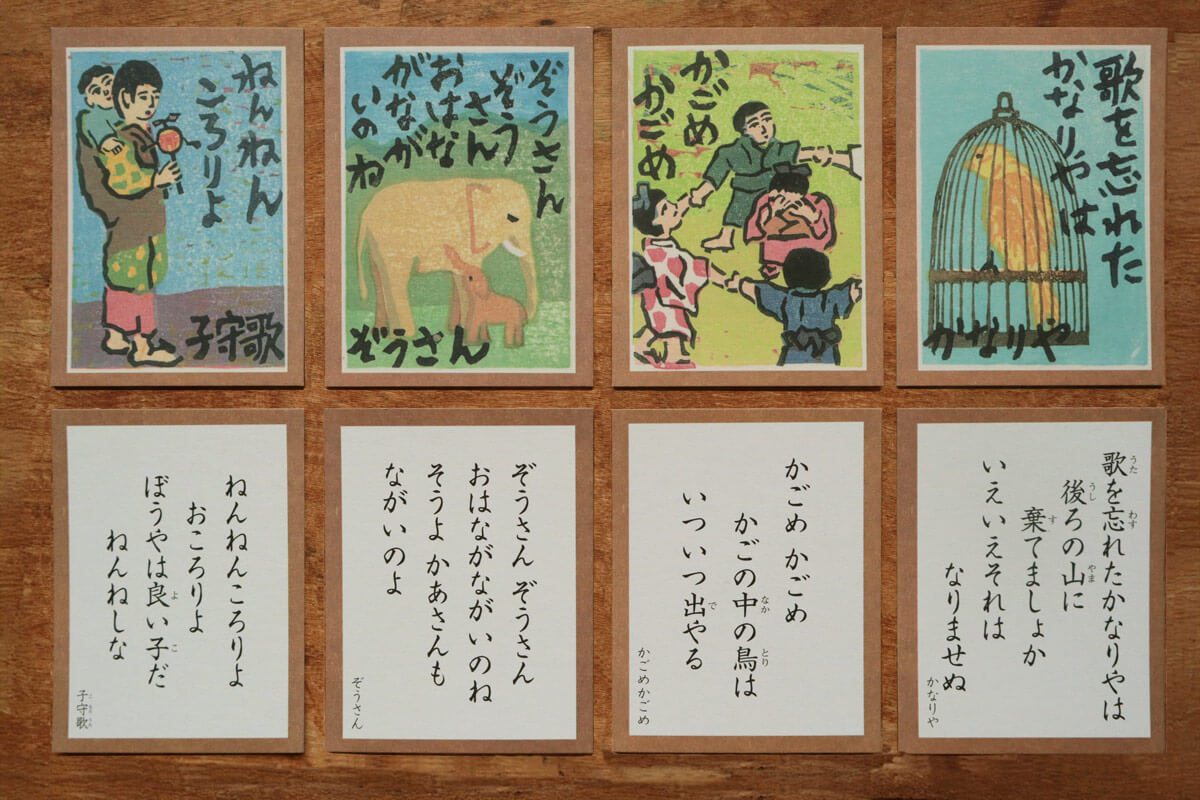 ねんねん
ころりよ
子守歌
ぞうさん
ぞう
さん
おはな
がなが
いのね
ぞうさん
かごめ
かごめ
歌を忘れた
かなりやは
かなりや
ねんねんころりよ
おころりよ
よ こ
ぼうやは良い子だ
ねんねしな
こもりうた
子守歌
ぞうさん ぞうさん
おはながながいのね
そうよ かあさんも
ながいのよ
ぞうさん
かごめ かごめ
なか とり
かごの中の鳥は
で
いついつ出やる
かごめかごめ
うた わす
歌を忘れたかなりやは
うし やま
後ろの山に
す
棄てましょか
いえいえそれは
なりませぬ
かなりや